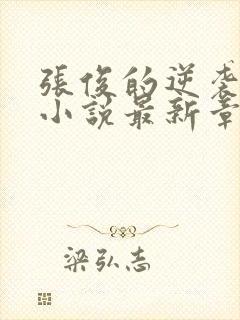 張俊的逆袭
小說最新章
梁弘志